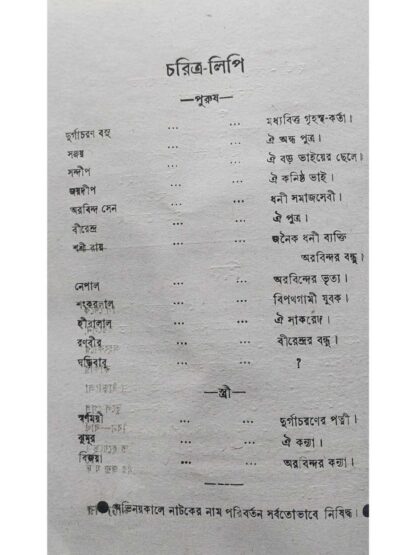 চরিত্র-লিপি
—পুরুষ—
দুর্গাচরণ বসু ... ... মধ্যবিত্ত গৃহস্থ-কর্ত্তা।
সঞ্জয় ... ... ঐ অন্ধ পুত্র।
সন্দীপ ... ... ঐ বড় ভাইয়ের ছেলে।
জয়দীপ ... ... ঐ কনিষ্ঠ ভাই।
অরবিন্দ সেন ... ... ধনী সমাজসেবী।
বীরেন্দ্র ... ... ঐ পুত্র।
শশী রায় ... ... জনৈক ধনী ব্যক্তি
অরবিন্দর বন্ধু।
নেপাল ... ... অরবিন্দের ভৃত্য।
শঙ্করলাল ... ... বিপথগামী যুবক।
হীরালাল ... ... ঐ সাকরেদ।
রণবীর ... ... বীরেন্দ্রর বন্ধু।
ঘড়িবাবু ... ... ?
—স্ত্রী—
স্বর্ণময়ী ... ... দুর্গাচরণের পত্নী।
ঝুমুর ... ... ঐ কন্যা।
বিজয়া ... ... অরবিন্দর কন্যা।
অভিনয়কালে নাটকের নাম পরিবর্তন সর্বতোভাবে নিষিদ্ধ।